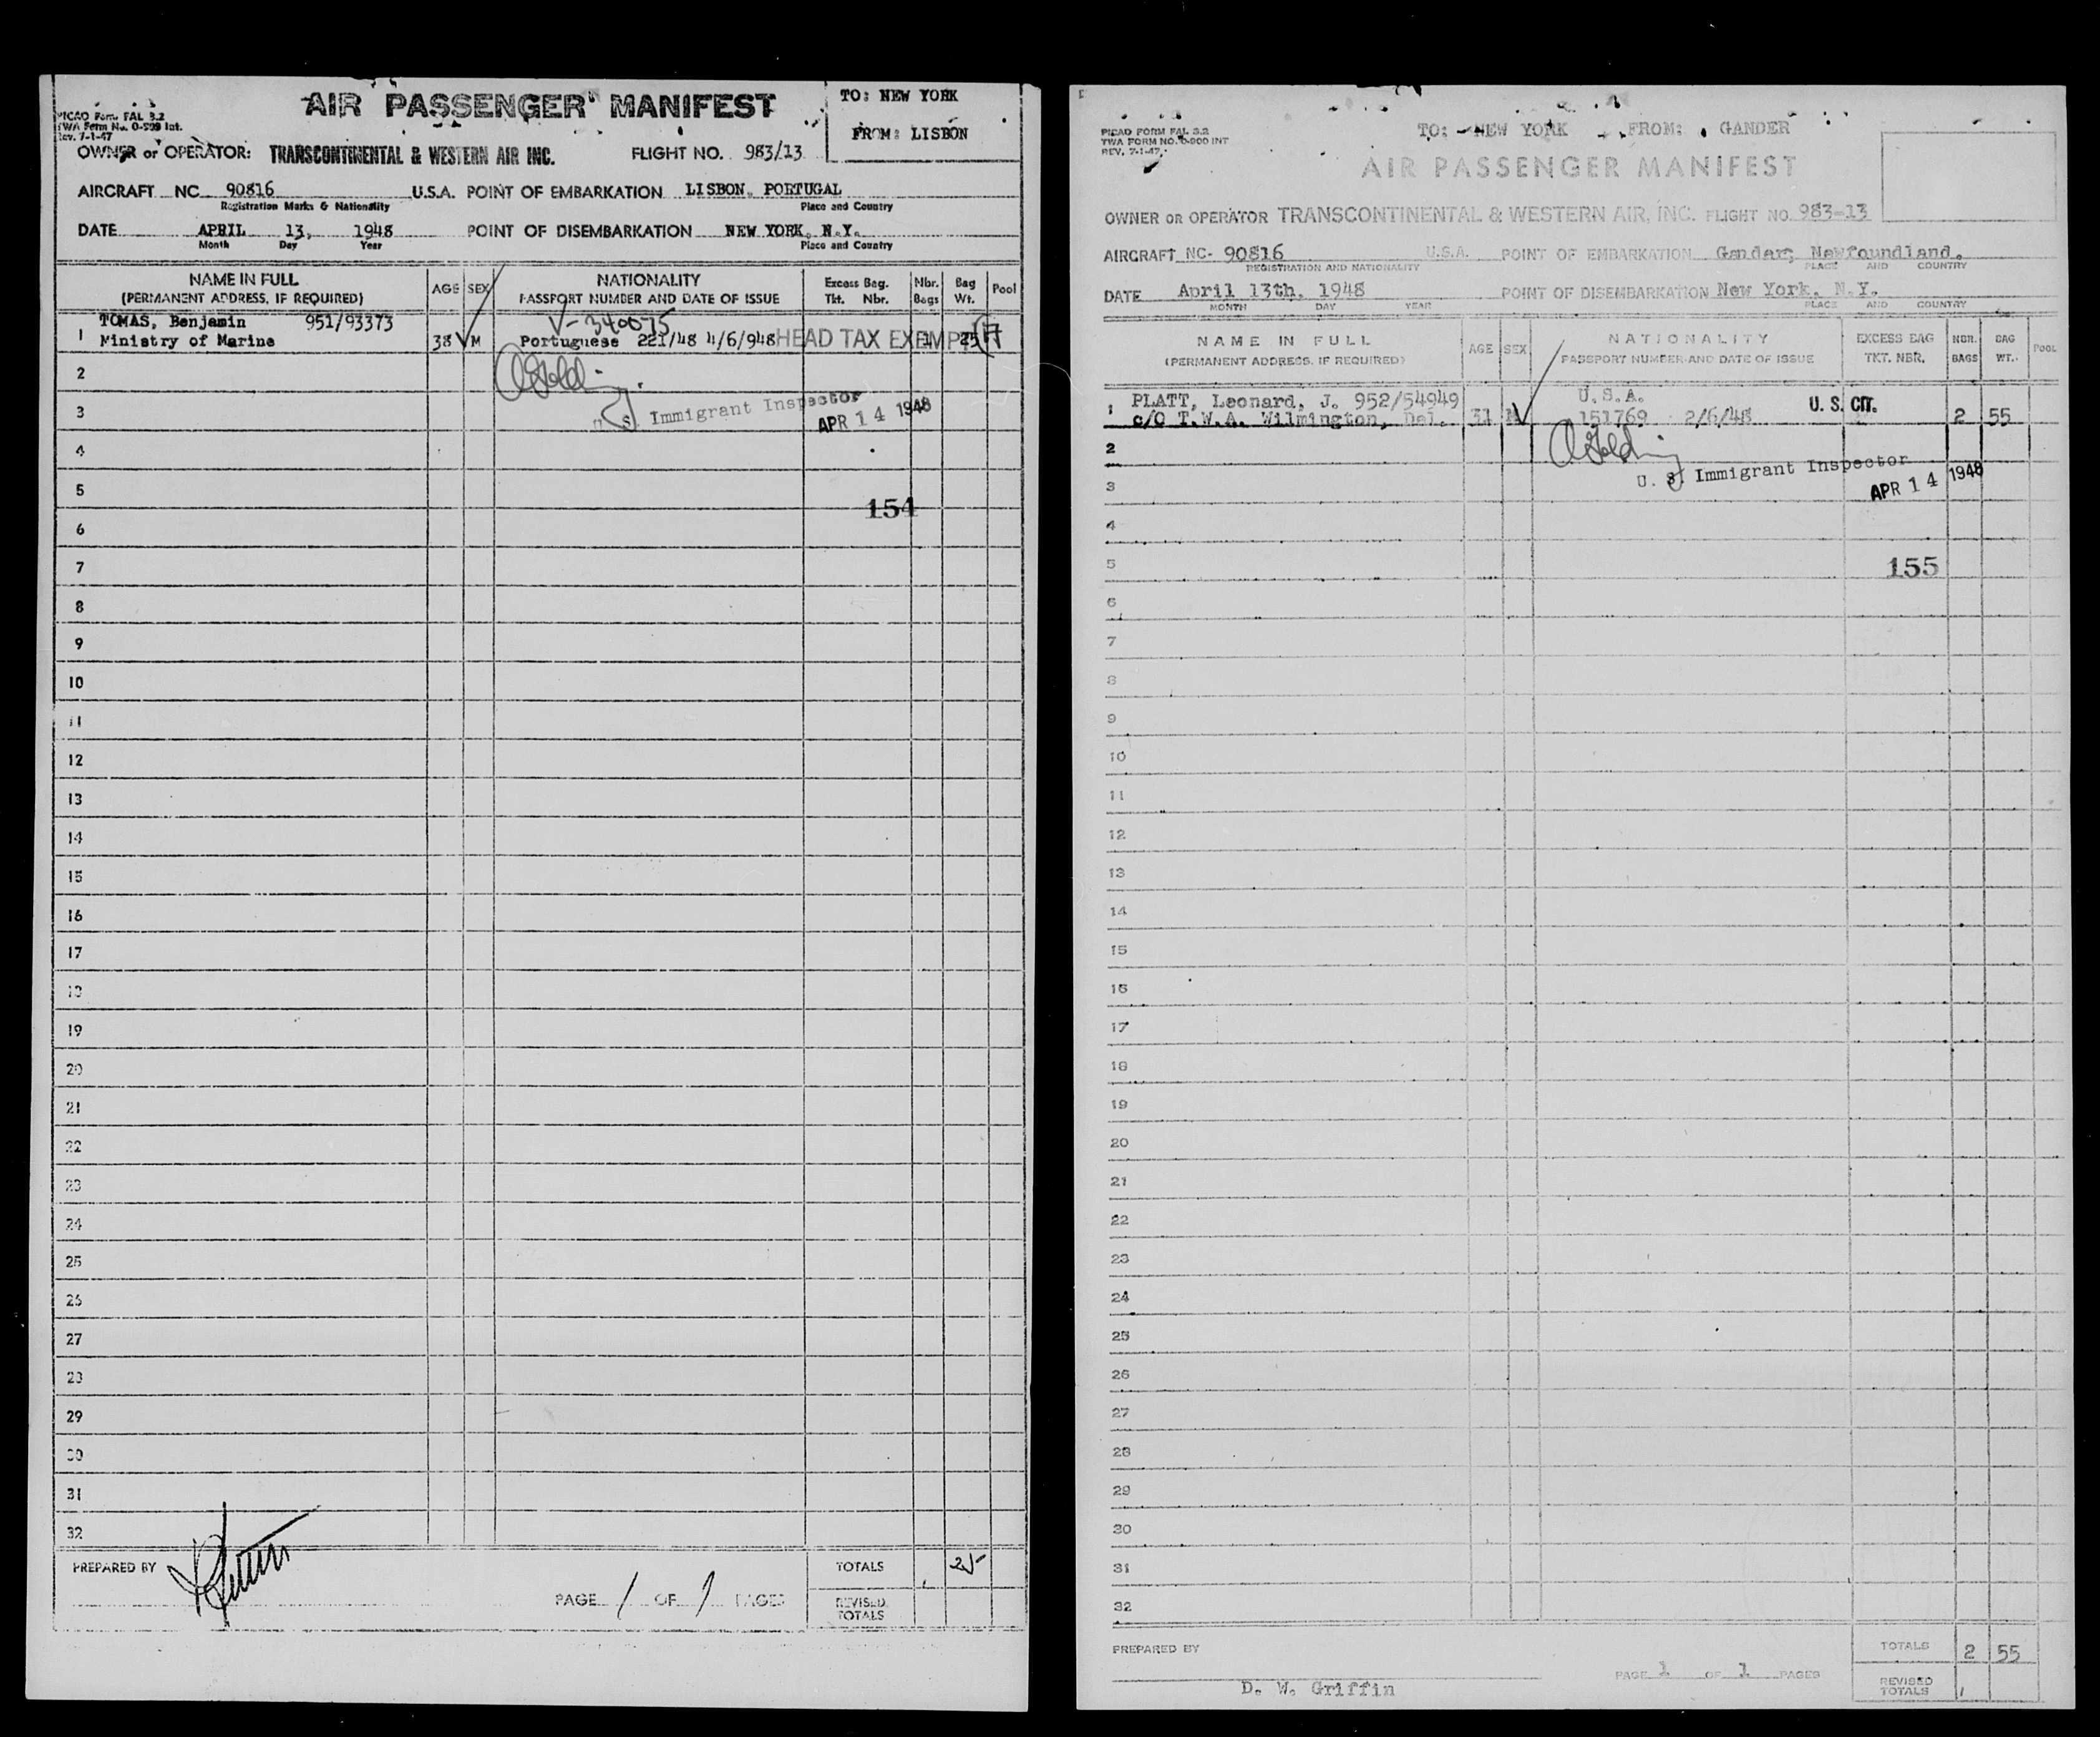 AIR PASSENGER MANIFEST
TO: NEW YORK
FROM: LISBON
PICAO Form FAL 3.2
TWA Form No. O-599 Int.
Rev. 7-1-47
OWNER or OPERATOR: TRANSCONTINENTAL & WESTERN AIR INC. FLIGHT NO. 983/13
AIRCRAFT NC 90816 U.S.A. POINT OF EMBARKATION LISBON, PORTUGAL
Registration Marks & Nationality Place and Country
DATE APRIL 13, 1948 POINT OF DISEMBARKATION NEW YORK, N.Y.
Month Day Year Place and Country
NAME IN FULL
(PERMANENT ADDRESS, IF REQUIRED)
AGE SEX
NATIONALITY
PASSPORT NUMBER AND DATE OF ISSUE
Excess Bag. Tkt. Nbr.
Nbr. Bags
Bag Wt.
Pool
V-340075
1 TOMAS, Benjamin 951/93373
Ministry of Marine 38 M Portuguese 221/48 4/6/948 HEAD TAX EXEMPT 1 25
2
3
U. S. Immigrant Inspector
APR 14 1948
4
5
154
6
7
8
9
10
11
12
13
14
15
16
17
18
19
20
21
22
23
24
25
26
27
28
29
30
31
32
PREPARED BY
PAGE 1 OF 1 PAGES
TOTALS 25
REVISED TOTALS
PICAO FORM FAL 3.2
TWA FORM NO. O-900 INT
REV. 7-1-47
TO: NEW YORK FROM: GANDER
AIR PASSENGER MANIFEST
OWNER OR OPERATOR TRANSCONTINENTAL & WESTERN AIR, INC. FLIGHT NO. 983-13
AIRCRAFT NC- 90816 U.S.A. POINT OF EMBARKATION Gander, Newfoundland.
REGISTRATION AND NATIONALITY PLACE AND COUNTRY
DATE April 13th. 1948 POINT OF DISEMBARKATION New York, N.Y.
MONTH DAY YEAR PLACE AND COUNTRY
NAME IN FULL
(PERMANENT ADDRESS, IF REQUIRED)
AGE SEX
NATIONALITY
PASSPORT NUMBER AND DATE OF ISSUE
EXCESS BAG TKT. NBR.
NBR. BAGS
BAG WT.
POOL
1 PLATT, Leonard, J. 952/54949 U.S.A.
c/o T.W.A. Wilmington, Del. 31 M 151769 2/6/48 U.S. CIT. 2 55
2
U. S. Immigrant Inspector
3
APR 14 1948
4
5
155
6
7
8
9
10
11
12
13
14
15
16
17
18
19
20
21
22
23
24
25
26
27
28
29
30
31
32
PREPARED BY
D. W. Griffin
PAGE 1 OF 1 PAGES
TOTALS 2 55
REVISED TOTALS